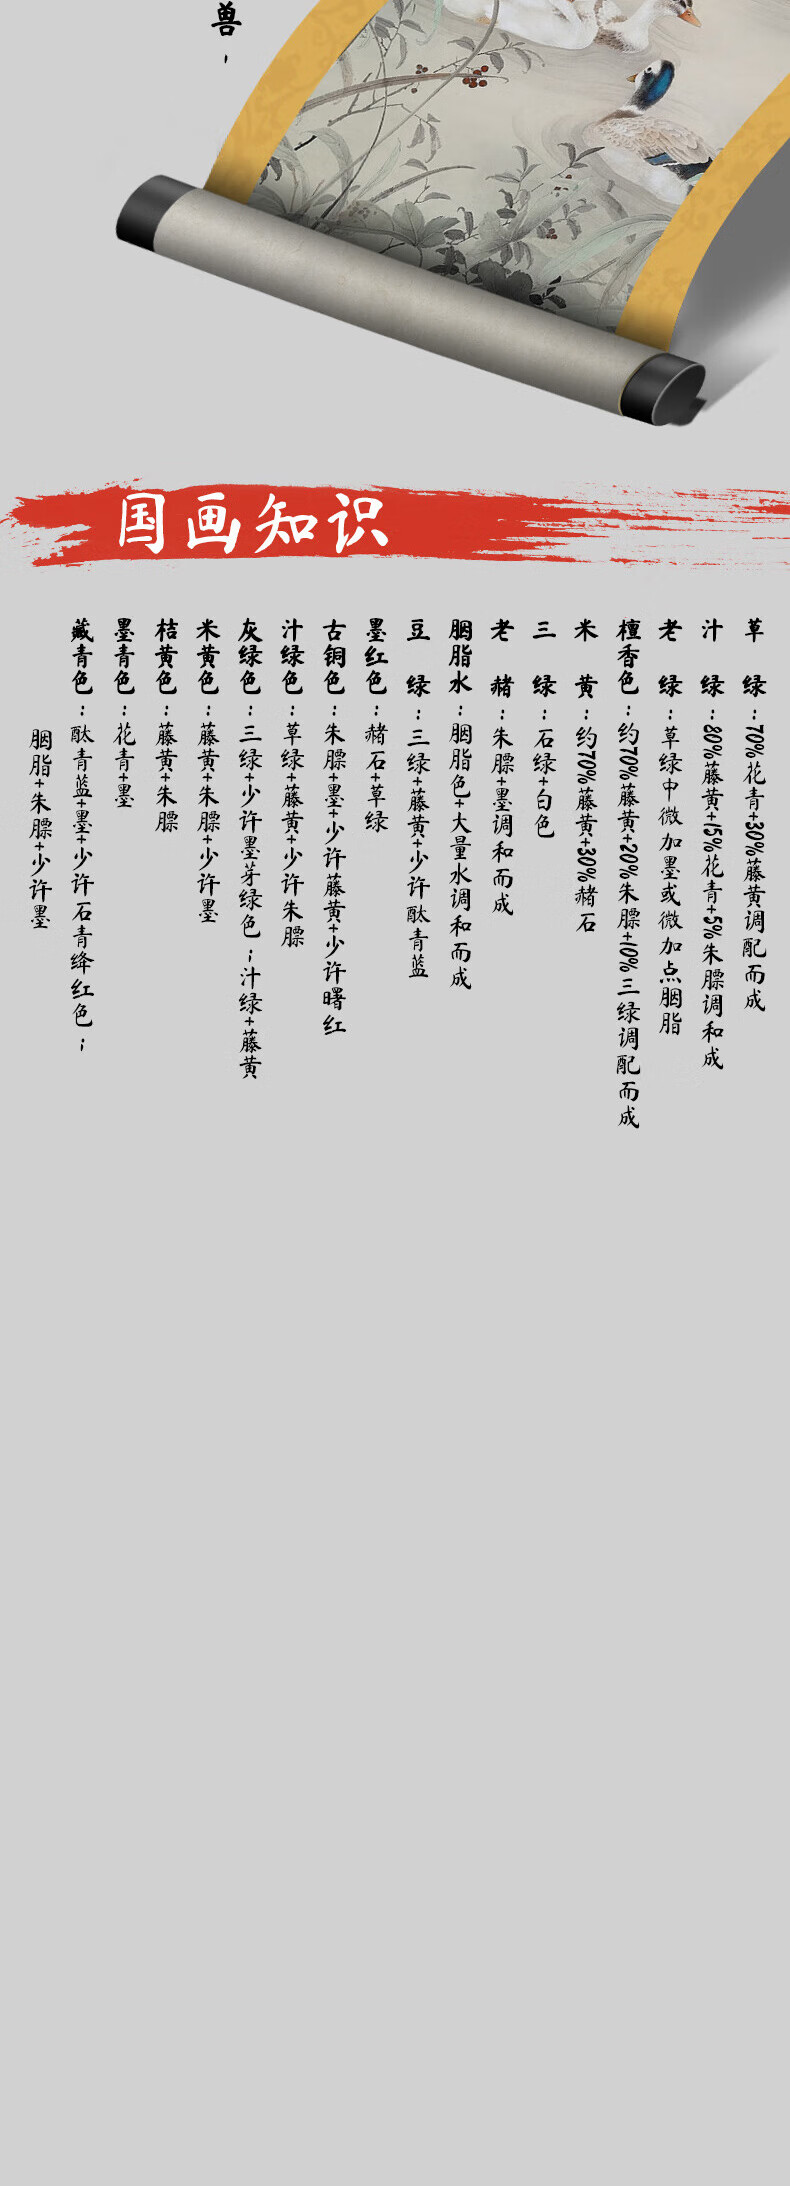 兽，
国画知识
草绿：70%花青+30%藤黄调配而成
汁绿：80%藤黄+15%花青+5%朱膘调和成
老绿：草绿中微加墨或微加点胭脂
檀香色：约70%藤黄+20%朱膘+10%三绿调配而成
米黄：约70%藤黄+30%赭石
三绿：石绿+白色
老赭：朱膘+墨调和而成
胭脂水：胭脂色+大量水调和而成
豆绿：三绿+藤黄+少许酞青蓝
墨红色：赭石+草绿
古铜色：朱膘+墨+少许藤黄+少许曙红
汁绿色：草绿+藤黄+少许朱膘
灰绿色：三绿+少许墨芽绿色；汁绿+藤黄
米黄色：藤黄+朱膘+少许墨
桔黄色：藤黄+朱膘
墨青色：花青+墨
藏青色：酞青蓝+墨+少许石青绛红色；
胭脂+朱膘+少许墨